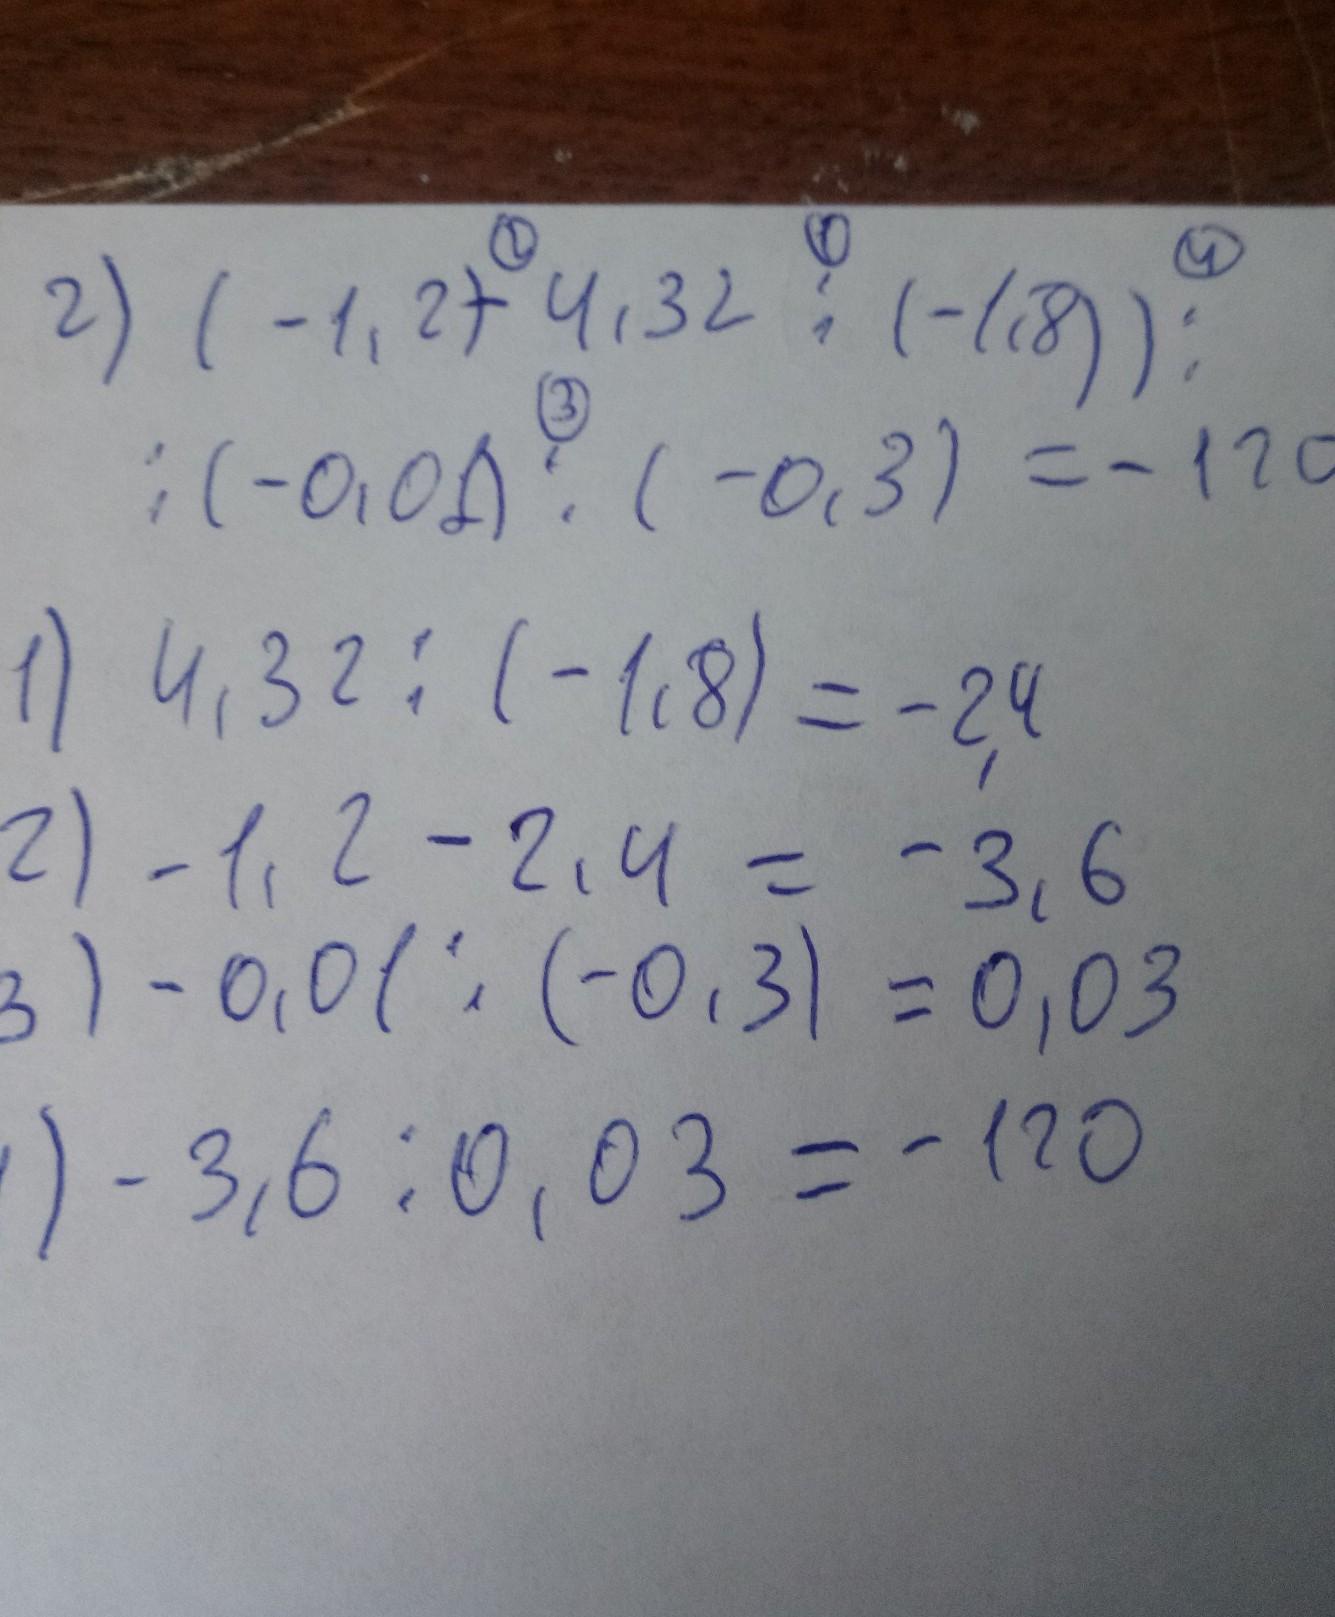 ② ① ④
2) (-1,2+4,32 : (-1,8)) :
③
: (-0,01) : (-0,3) = -120
1) 4,32 : (-1,8) = -2,4
2) -1,2 - 2,4 = -3,6
3) -0,01 : (-0,3) = 0,03
) -3,6 : 0,03 = -120